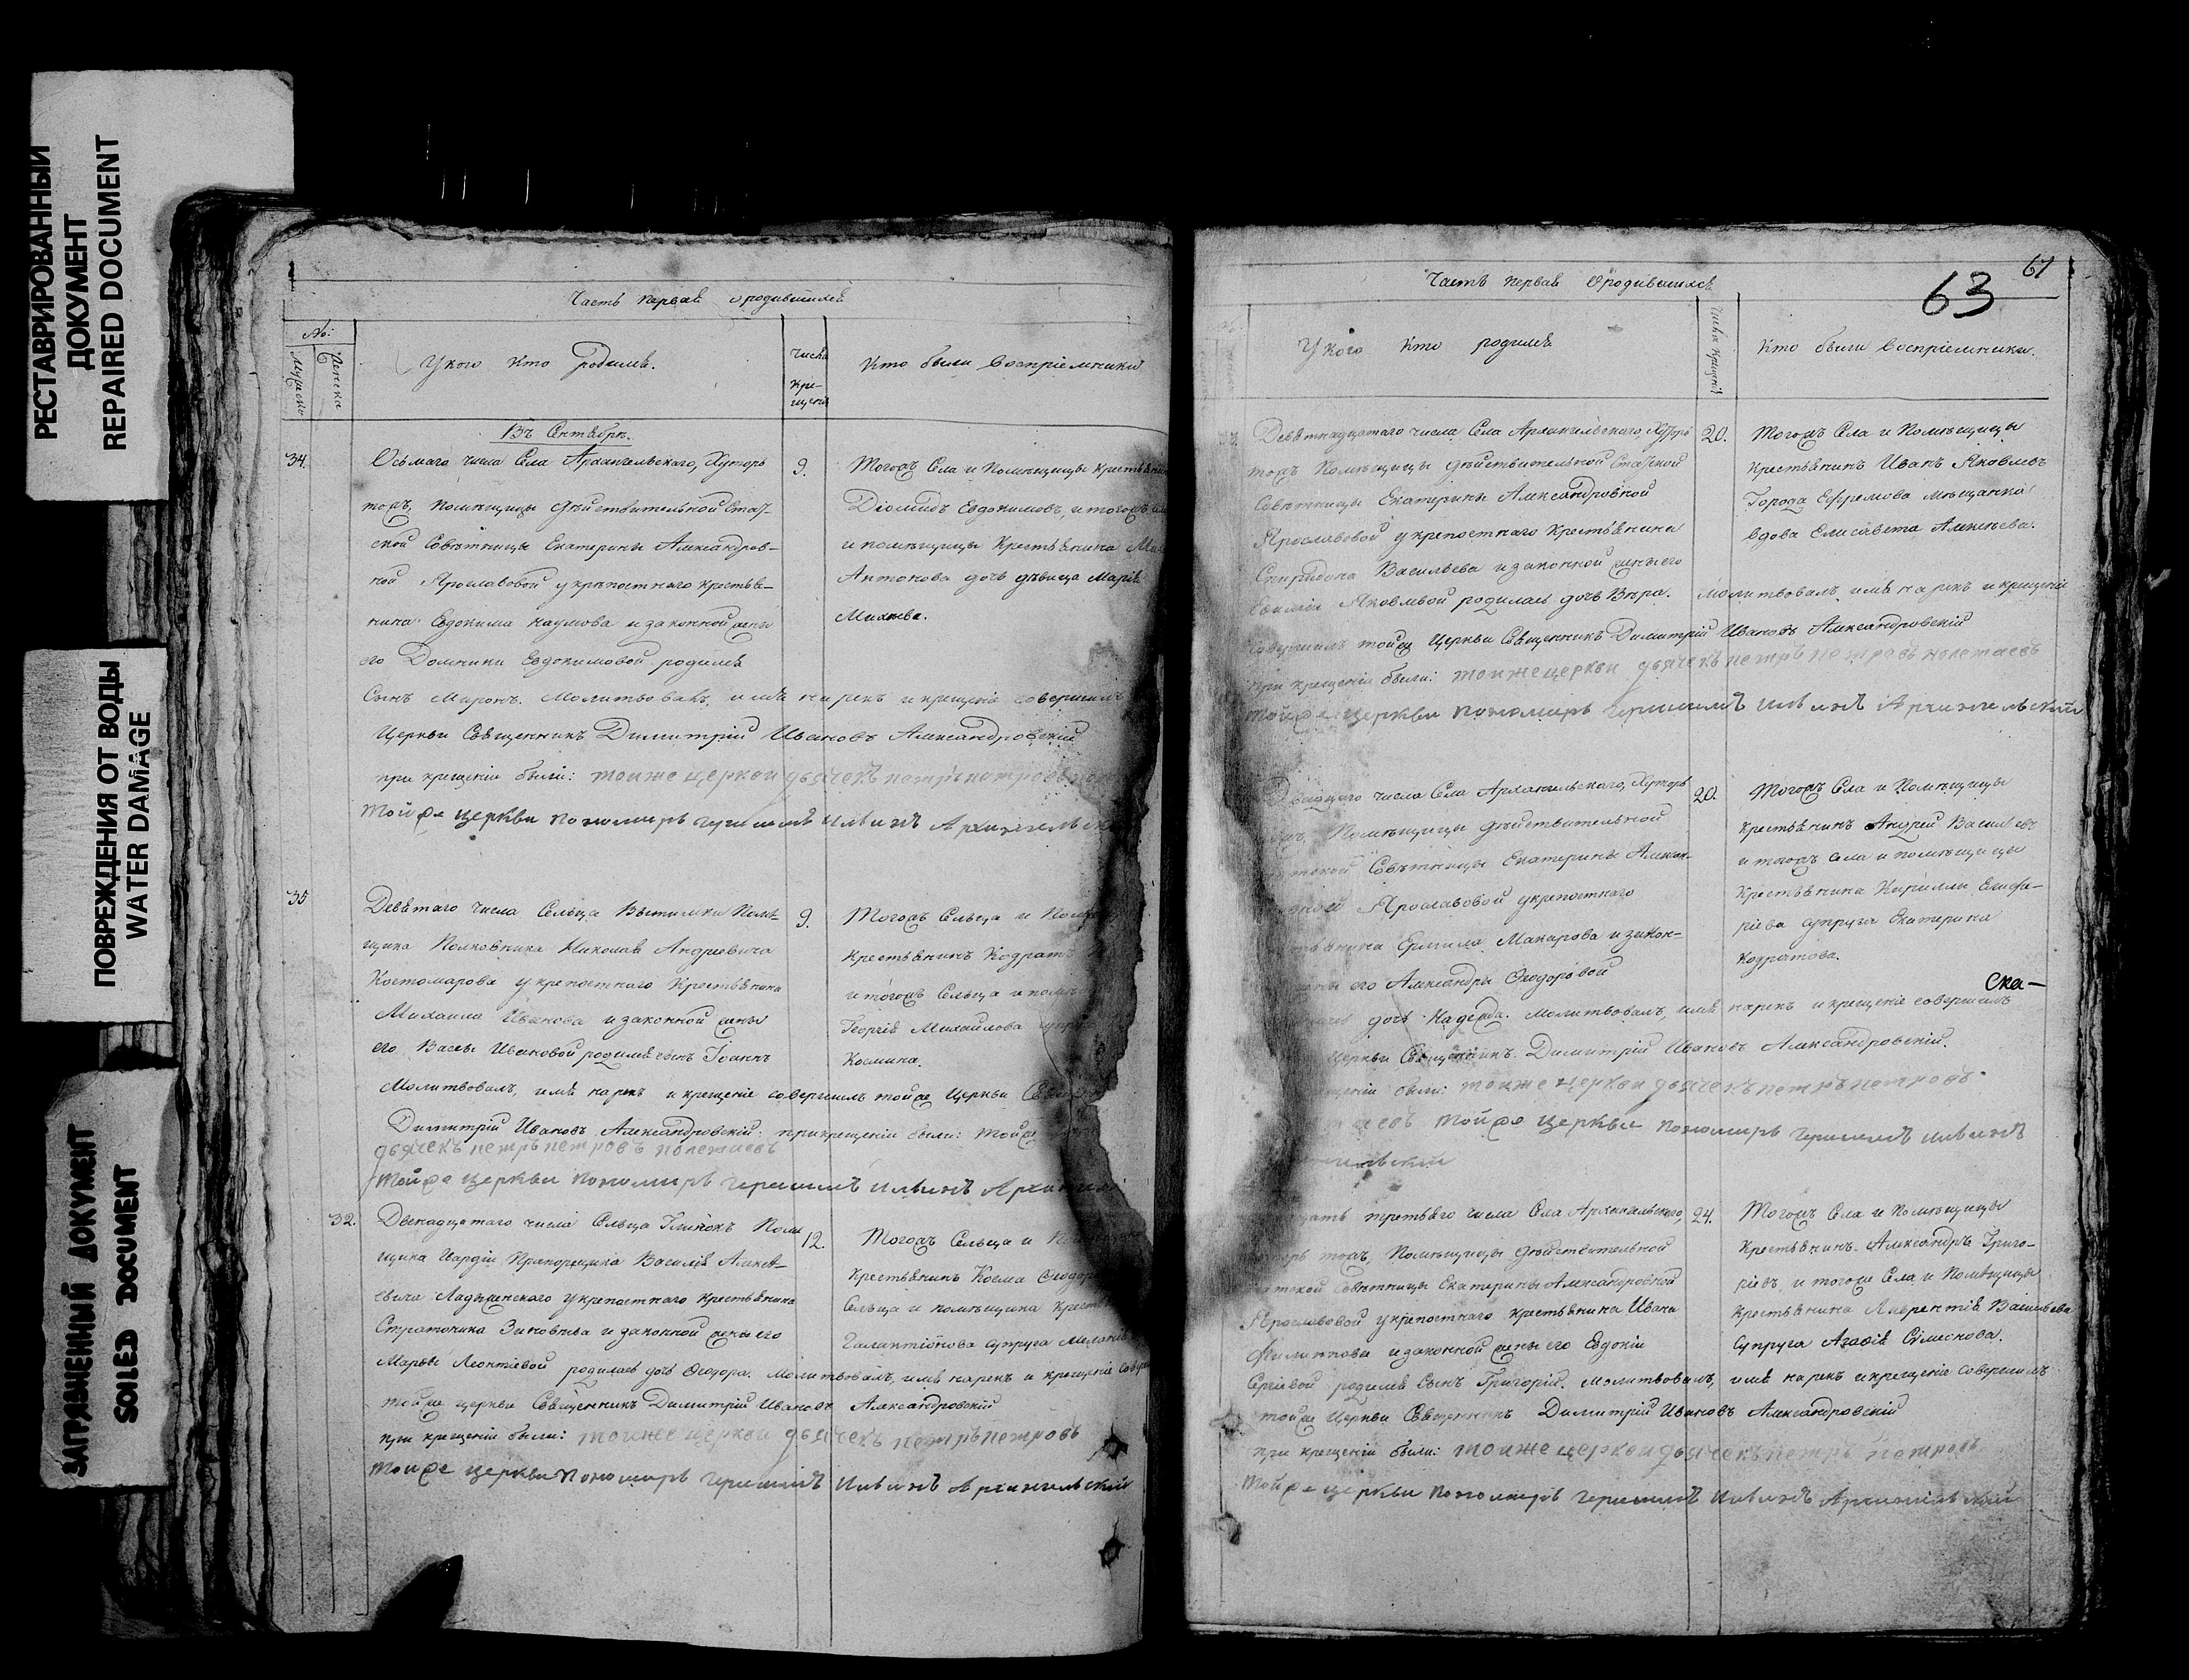 РЕСТАВРИРОВАННЫЙ
ДОКУМЕНТ
REPAIRED DOCUMENT
ПОВРЕЖДЕНИЯ ОТ ВОДЫ
WATER DAMAGE
ЗАГРЯЗНЕННЫЙ ДОКУМЕНТ
SOILED DOCUMENT
Часть первая о родившихся
№:
Мужеска
Женска
У кого кто родился.
Числа
кре-
щения
Кто были Воспріемники
Въ Сентябрѣ.
34.
Осьмаго числа Села Архангельскаго, Хуторъ
тожъ, Помѣщицы дѣйствительной Стат-
ской Совѣтницы Екатерины Александров-
ной Ярославовой укрѣпостнаго крестья-
нина Евдокима Наумова и законной жены
его Домники Евдокимовой родился
Сынъ Миронъ. Молитвовалъ, имя нарекъ и крещеніе совершилъ
Церкви Священникъ Димитрій Ивановъ Александровскій
при крещеніи были: тоиже церкви дьячекъ петръ петровъ
тойже церкви пономарь герасимъ ильинъ
9.
Тогожъ Села и Помѣщицы
Діомидъ Евдокимовъ, и тогожъ
и помѣщицы Крестьянина
Антонова дочь дѣвица Марія
Михѣева.
35
Девятаго числа Сельца Помѣ-
щика Полковника Николая Андреевича
Костомарова укрепостнаго Крестьянина
Михаила Иванова и законной жены
его Вассы Ивановой родился сынъ Іоаннъ
Молитвовалъ, имя нарекъ и крещеніе совершилъ тойже Церкви
Димитрій Ивановъ Александровскій: при крещеніи были: тойже
дьячекъ петръ петровъ полетаевъ
тойже церкви пономарь герасимъ ильинъ
9.
Тогожъ Сельца и
Крестьянинъ Кодратъ
и тогожъ Сельца и
Георгія Михайлова
Космина.
32.
Двенадцатаго числа Сельца Глинокъ Помѣ
щика Гвардіи Прапорщика Василія Алексѣ-
евича Ладыженскаго укрепостнаго крестьянина
Стратоника Зиновьева и законной жены его
Марьи Леонтіевой родилась дочь Ѳеодора. Молитвовалъ, имя нарекъ и крещеніе
тойже церкви Священникъ Димитрій Ивановъ Александровскій
при крещеніи были: тоиже церкви дьячекъ петръ петровъ
тойже церкви пономарь герасимъ ильинъ Архангельскій
12.
Тогожъ Сельца и
Крестьянинъ Косма
Сельца и помѣщика
Галактіонова супруга
63
61
Часть первая О родившихся
У кого кто родился
Числа крещенія
Кто были Воспріемники.
Девятнадцатаго числа Села Архангельскаго, Хуторъ
тожъ Помѣщицы дѣйствительной Статской
Совѣтницы Екатерины Александровной
Ярославовой укрепостнаго Крестьянина
Спиридона Васильева и законной жены его
Яковлевой родилась дочь Вѣра. Молитвовалъ имя нарекъ и крещеніе
совершилъ тойже Церкви Священникъ Димитрій Ивановъ Александровскій
при крещеніи были: тоиже церкви дьячекъ петръ петровъ полетаевъ
тойже церкви пономарь герасимъ ильинъ Архангельскій
20.
Тогожъ Села и Помѣщицы
Крестьянинъ Иванъ Яковлевъ
Города Ефремова мѣщанка
вдова Елисавета Алексѣева.
числа Села Архангельскаго, Хуторъ
Помѣщицы дѣйствительной
Совѣтницы Екатерины
Ярославовой укрепостнаго
Ермила Макарова и закон-
его Александры Ѳеодоровой
дочь Надежда. Молитвовалъ, имя нарекъ и крещеніе совершилъ
церкви Священникъ Димитрій Ивановъ Александровскій.
были: тоиже церкви дьячекъ петръ петровъ
тойже церкви пономарь герасимъ ильинъ
20.
Тогожъ Села и Помѣщицы
Крестьянинъ Андрей Васильевъ
и тогожъ села и помѣщицы
Крестьянина Кирилла Елифе-
ріева супруга Екатерина
Кодратова.
Ска-
третьяго числа Села Архангельскаго,
тожъ, Помѣщицы дѣйствительной
Совѣтницы Екатерины Александровной
Ярославовой укрепостнаго крестьянина Ивана
Филиппова и законной жены его Евдокіи
Сергіевой родился Сынъ Григорій. Молитвовалъ, имя нарекъ и крещеніе совершилъ
тойже Церкви Священникъ Димитрій Ивановъ Александровскій
при крещеніи были: тоиже церкви дьячекъ петръ петровъ
тойже церкви пономарь герасимъ ильинъ Архангельскій
24.
Тогожъ Села и Помѣщицы
Крестьянинъ Александръ Григо-
ріевъ и тогоже Села и Помѣщицы
Крестьянина Лаврентія Васильева
супруга Агафія Сѵмеонова.